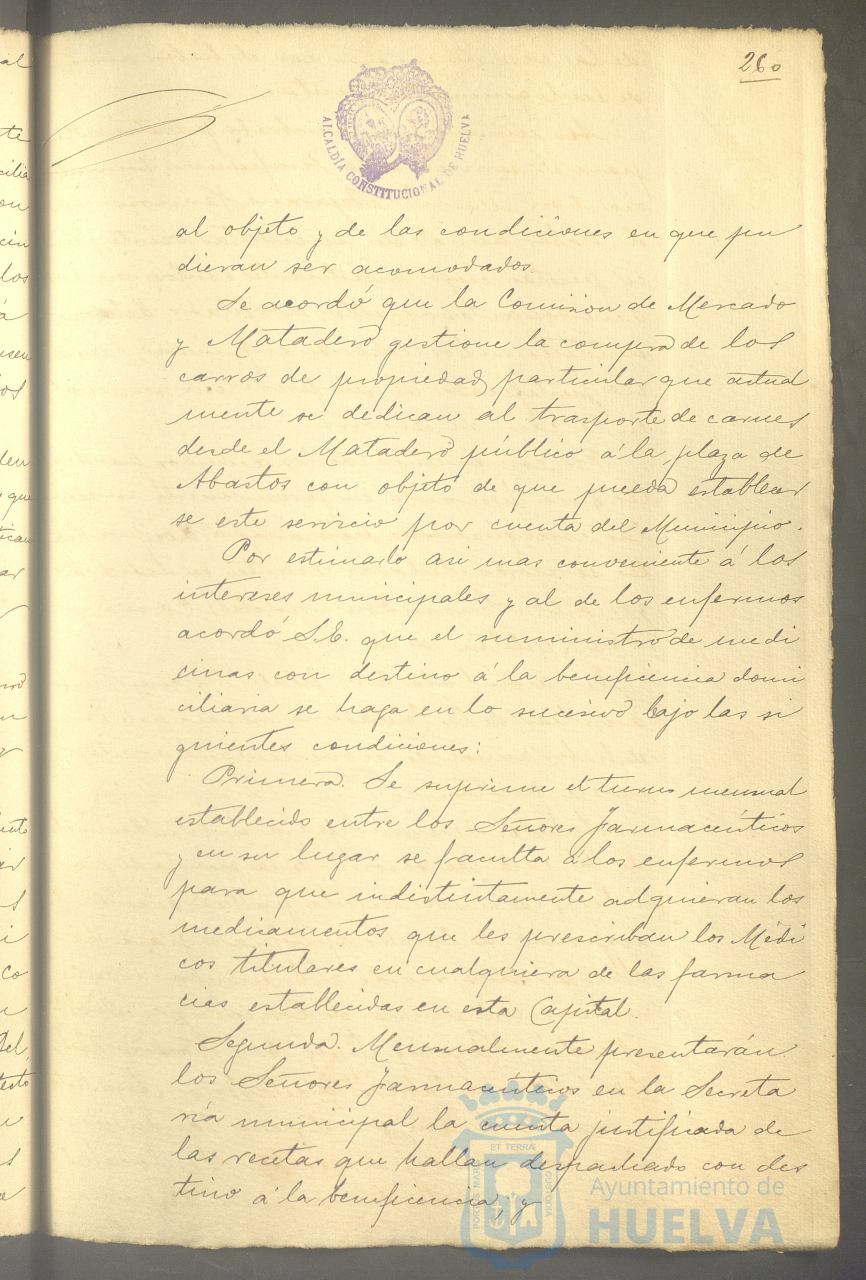 260
ALCALDÍA CONSTITUCIONAL DE HUELVA
al objeto y de las condiciones en que pu
dieran ser acomodados.
Se acordó que la Comision de Mercado
y Matadero gestione la compra de los
carros de propiedad particular que actual
mente se dedican al trasporte de carnes
desde el Matadero público á la plaza de
Abastos con objeto de que pueda establecer
se este servicio por cuenta del Municipio.
Por estimarlo asi mas conveniente á los
intereses municipales y al de los enfermos
acordó S.E. que el suministro de medi
cinas con destino á la beneficencia domi
ciliaria se haga en lo sucesivo bajo las si
guientes condiciones:
Primera. Se suprime el turno mensual
establecido entre los Señores Farmacéuticos
y en su lugar se faculta á los enfermos
para que indistintamente adquieran los
medicamentos que les prescriban los Médi
cos titulares en cualquiera de las farma
cias establecidas en esta Capital.
Segunda. Mensualmente presentarán
los Señores Farmacéuticos en la Secreta
ría municipal la cuenta justificada de
las recetas que hallan despachado con des
tino á la beneficencia, y
PORTUS MARIS ET TERRÆ CUSTODIA
Ayuntamiento de
HUELVA